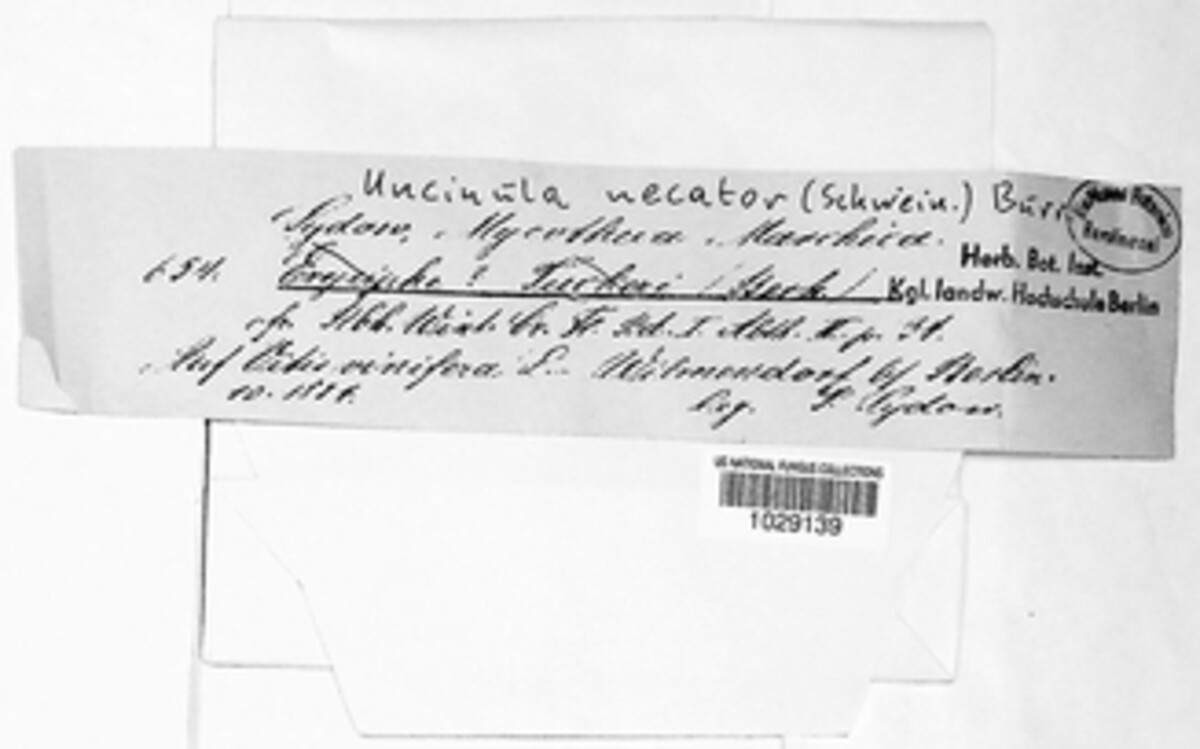 Uncinula necator (Schwein.) Burr.
Sydow, Mycotheca Marchica.
Herb. Bot. Inst.
Kgl. landw. Hochschule Berlin
654. Erysiphe ? Tuckeri (Berk.)
cfr. Abb. Wint. Cr. Fl. Bd. I. Abth. II. p. 31.
Auf Vitis vinifera L. Wilmersdorf b/ Berlin.
10. 1884. leg. P. Sydow.
US NATIONAL FUNGUS COLLECTIONS
1029139